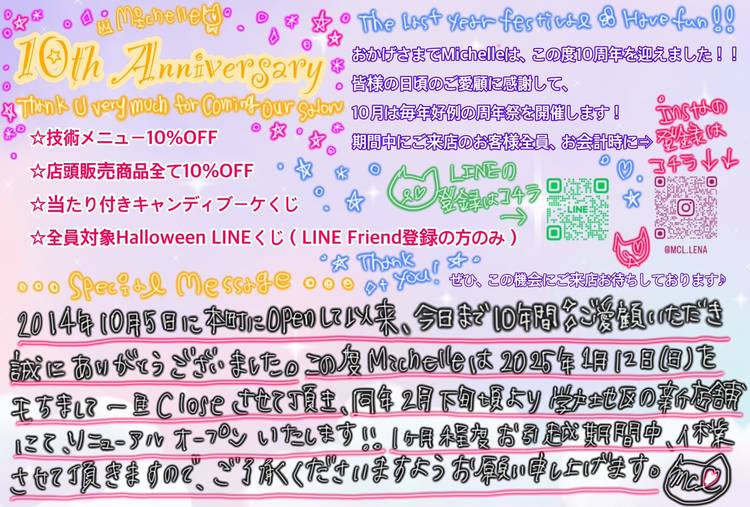 Michelle
10th Anniversary
Thank U very much for Coming our Salon
The Last Year festival Have fun!!
おかげさまでMichelleは、この度10周年を迎えました！！
皆様の日頃のご愛顧に感謝して、
10月は毎年好例の周年祭を開催します！
期間中にご来店のお客様全員、お会計時に⇒
☆技術メニュー10％OFF
☆店頭販売商品全て10％OFF
☆当たり付きキャンディブーケくじ
☆全員対象Halloween LINEくじ（LINE Friend登録の方のみ）
LINEの
登録はコチラ
→
LINE
Instaの
登録は
コチラ↓↓
@MCL.LENA
Thank
you!
ぜひ、この機会にご来店お待ちしております♪
Special Message
2014年10月5日に本町にOpenして以来、今日まで10年間ご愛顧いただき
誠にありがとうございました。この度Michelleは2025年1月12日(日)を
もちまして一旦Closeさせて頂き、同年2月下旬頃より学地区の新店舗
にて、リニューアルオープンいたします!!1ヶ月程度お引越し期間中、休業
させて頂きますので、ご了承くださいますようお願い申し上げます。